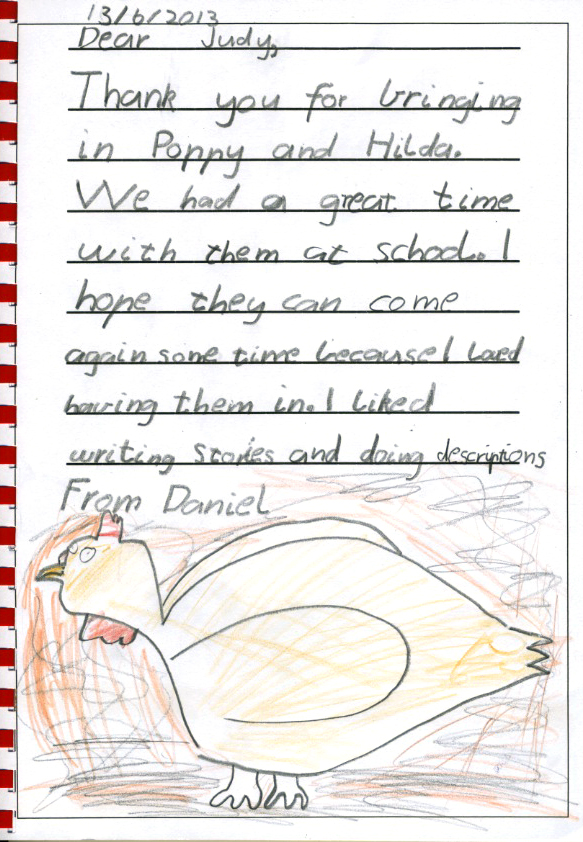 13/6/2013
Dear Judy,
Thank you for bringing
in Poppy and Hilda.
We had a great time
with them at school. I
hope they can come
again some time because I loved
having them in. I liked
writing stories and doing descriptions
From Daniel